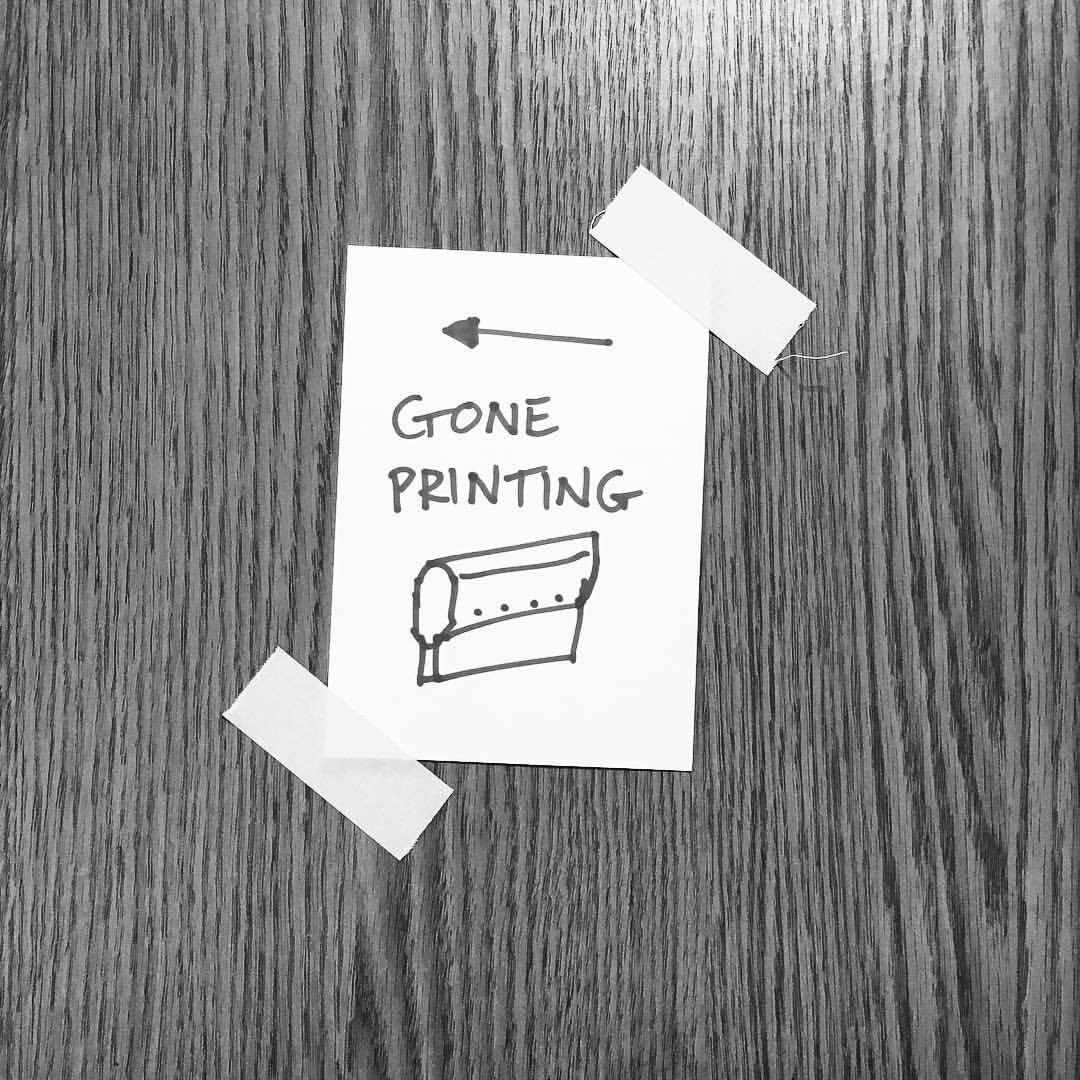 GONE
PRINTING